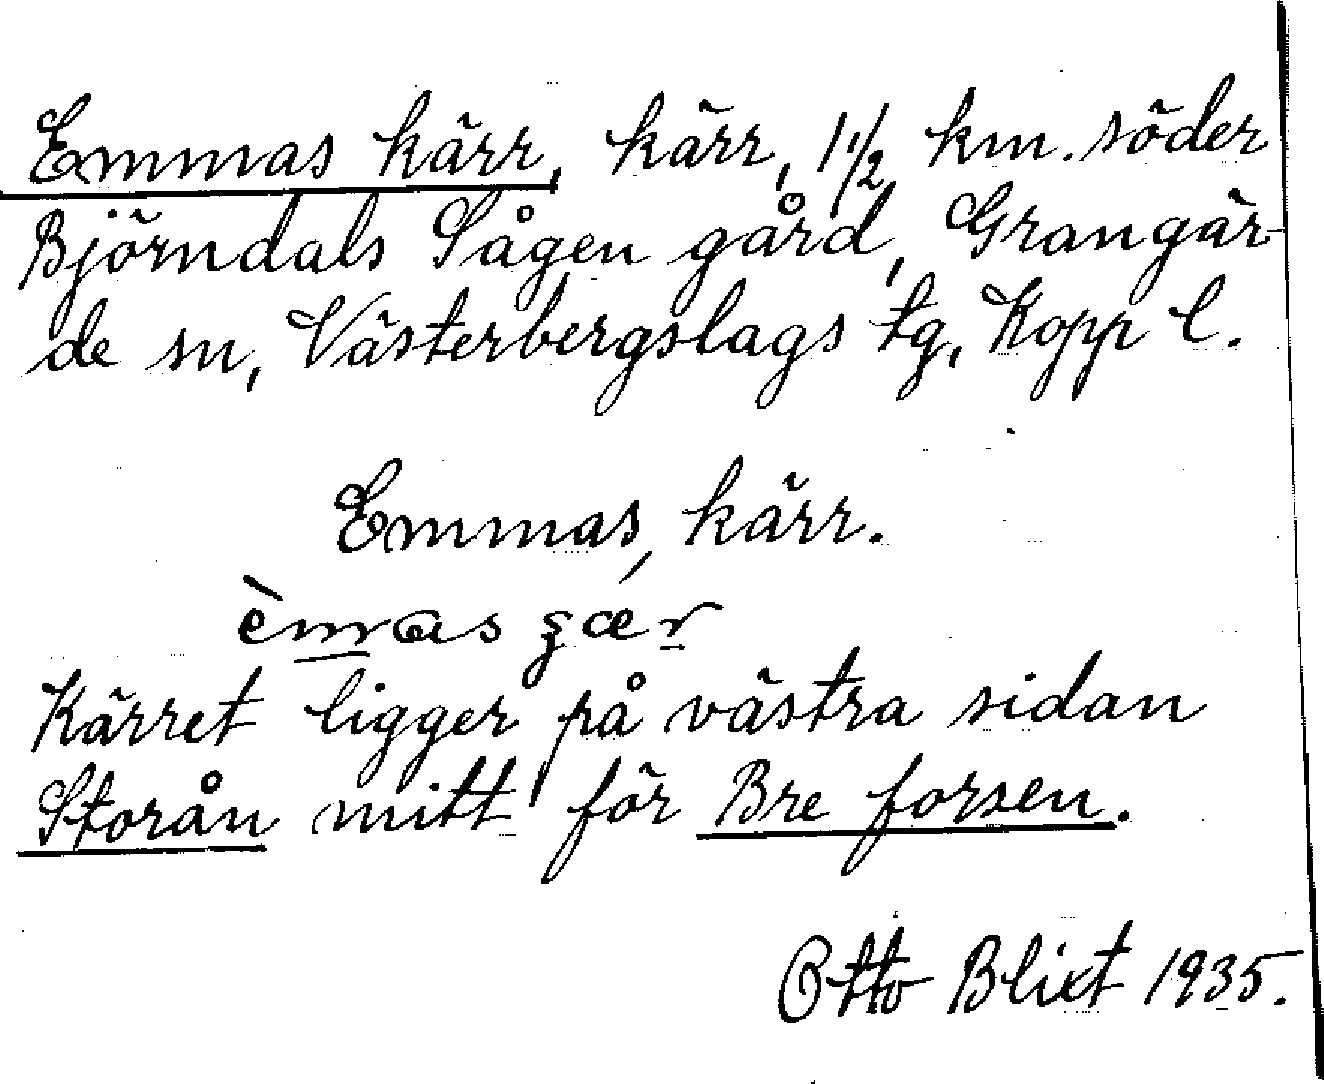 Emmas kärr, kärr, 1 1/2 km. söder
Björndals Sågen gård, Grangär-
de sn, Västerbergslags tg, Kopp l.
Emmas, kärr.
Kärret ligger på västra sidan
Storån mitt för Bre forsen.
Otto Blixt 1935.